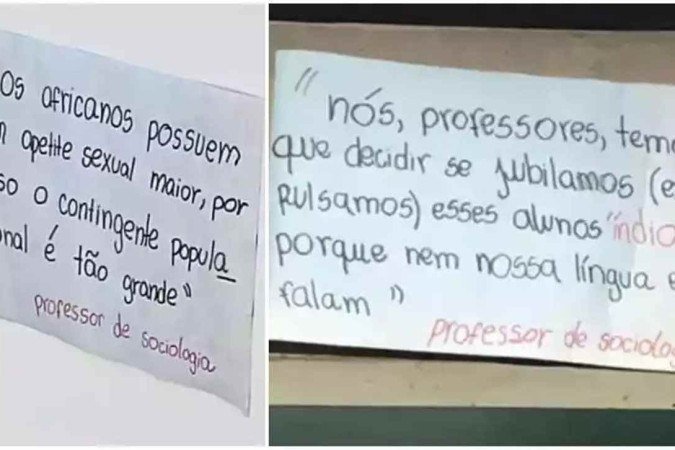 Os africanos possuem
apetite sexual maior, por
o contingente popula
é tão grande"
professor de sociologia
"nós, professores,
que decidir se jubilamos
esses alunos
porque nem nossa língua
falam"
professor de